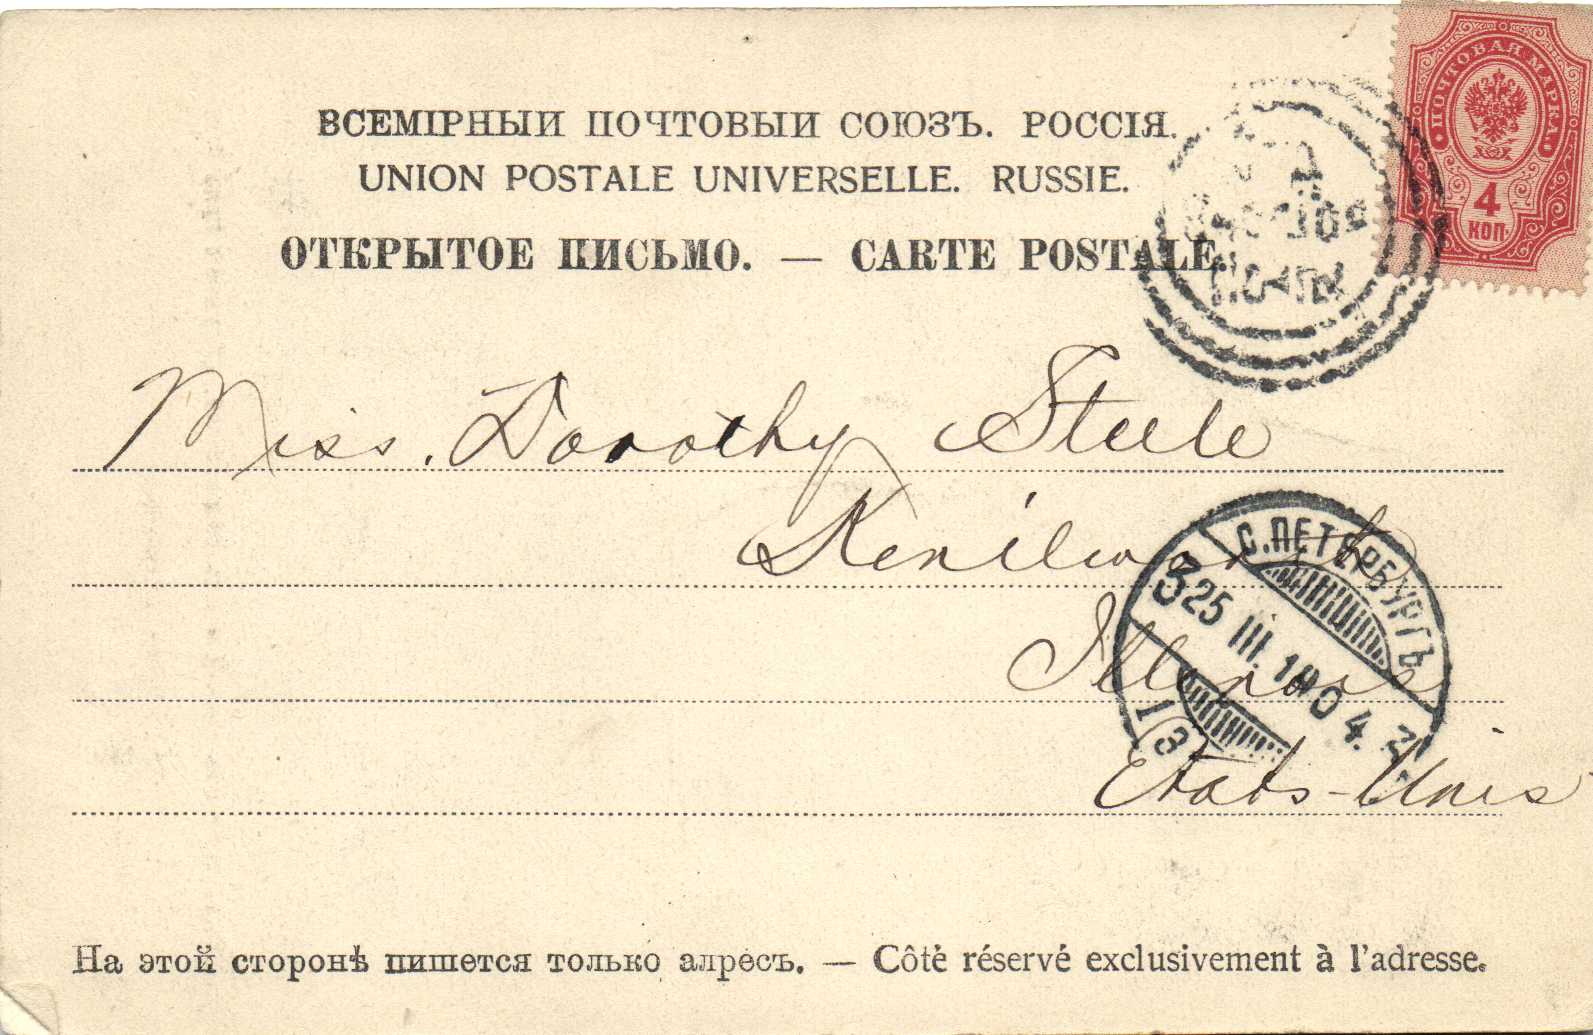 ВСЕМІРНЫЙ ПОЧТОВЫЙ СОЮЗЪ. РОССІЯ.
UNION POSTALE UNIVERSELLE. RUSSIE.
ОТКРЫТОЕ ПИСЬМО. — CARTE POSTALE.
ПОЧТОВАЯ МАРКА
4
КОП.
Miss. Dorothy Steele
Kenilworth
Illinois
Etats-Unis
С.ПЕТЕРБУРГЪ
25 III. 1904.
На этой сторонѣ пишется только адресъ. — Côté réservé exclusivement à l'adresse.